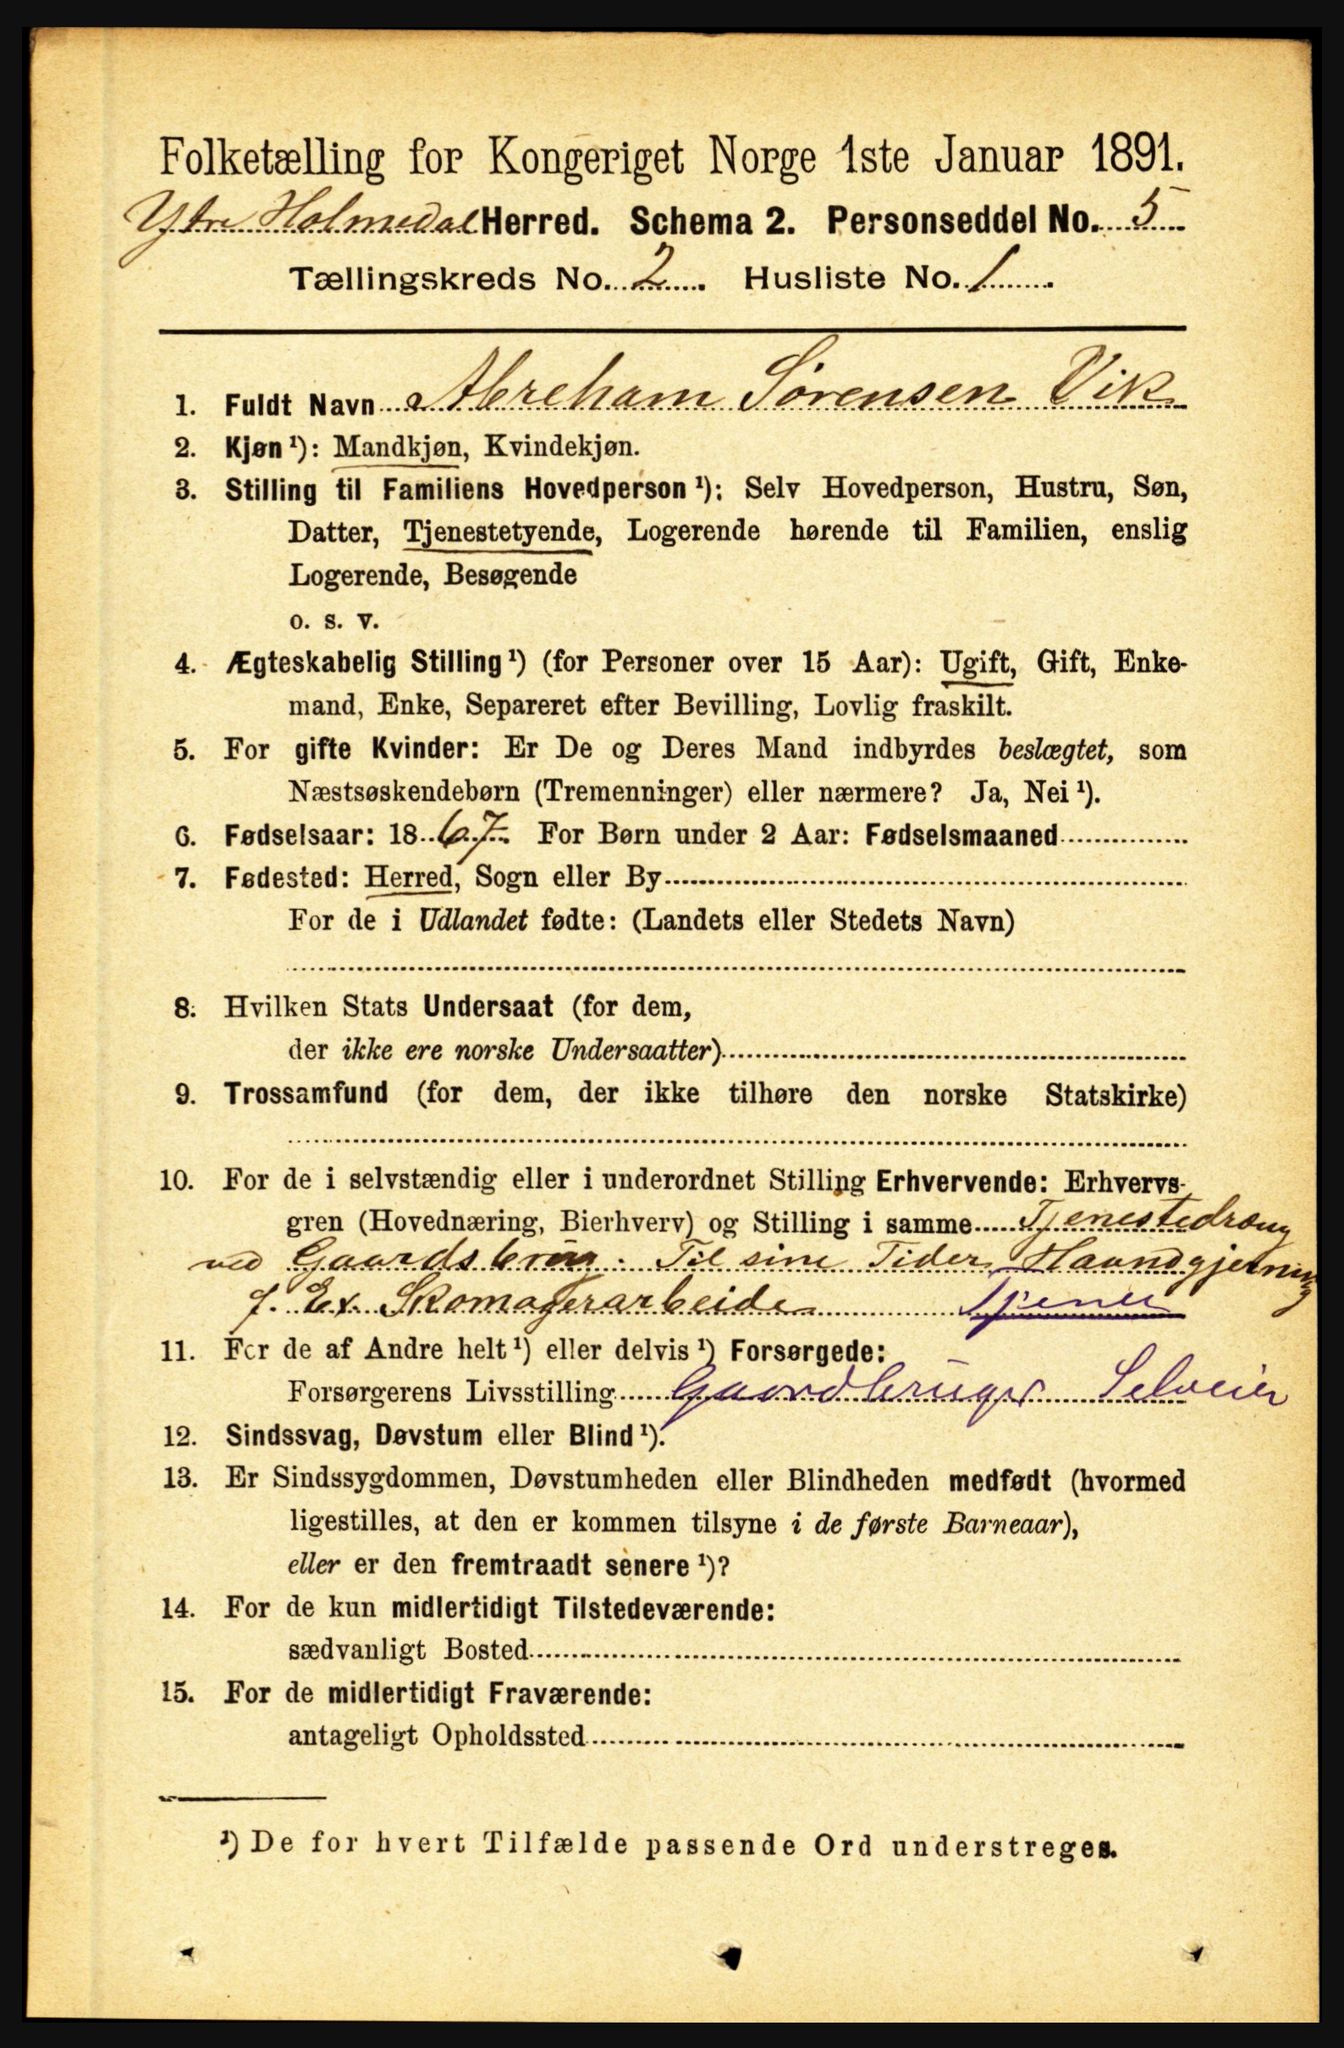 Folketælling for Kongeriget Norge 1ste Januar 1891.
Ytre Holmedal Herred. Schema 2. Personseddel No. 5
Tællingskreds No. 2. Husliste No. 1
1. Fuldt Navn Abreham Sørensen Vik
2. Kjøn ¹): Mandkjøn, Kvindekjøn.
3. Stilling til Familiens Hovedperson ¹): Selv Hovedperson, Hustru, Søn,
Datter, Tjenestetyende, Logerende hørende til Familien, enslig
Logerende, Besøgende
o. s. v.
4. Ægteskabelig Stilling ¹) (for Personer over 15 Aar): Ugift, Gift, Enke-
mand, Enke, Separeret efter Bevilling, Lovlig fraskilt.
5. For gifte Kvinder: Er De og Deres Mand indbyrdes beslægtet, som
Næstsøskendebørn (Tremenninger) eller nærmere? Ja, Nei ¹).
6. Fødselsaar: 1867. For Børn under 2 Aar: Fødselsmaaned
7. Fødested: Herred, Sogn eller By
For de i Udlandet fødte: (Landets eller Stedets Navn)
8. Hvilken Stats Undersaat (for dem,
der ikke ere norske Undersaatter)
9. Trossamfund (for dem, der ikke tilhøre den norske Statskirke)
10. For de i selvstændig eller i underordnet Stilling Erhvervende: Erhvervs-
gren (Hovednæring, Bierhverv) og Stilling i samme Tjenestedræng
ved Gaardsbrug. Til sine Tider Haandgjerning
f. Ex. Skomagerarbeide Tjener
11. For de af Andre helt ¹) eller delvis ¹) Forsørgede:
Forsørgerens Livsstilling Gaardbruger Selveier
12. Sindssvag, Døvstum eller Blind ¹).
13. Er Sindssygdommen, Døvstumheden eller Blindheden medfødt (hvormed
ligestilles, at den er kommen tilsyne i de første Barneaar),
eller er den fremtraadt senere ¹)?
14. For de kun midlertidigt Tilstedeværende:
sædvanligt Bosted
15. For de midlertidigt Fraværende:
antageligt Opholdssted
¹) De for hvert Tilfælde passende Ord understreges.